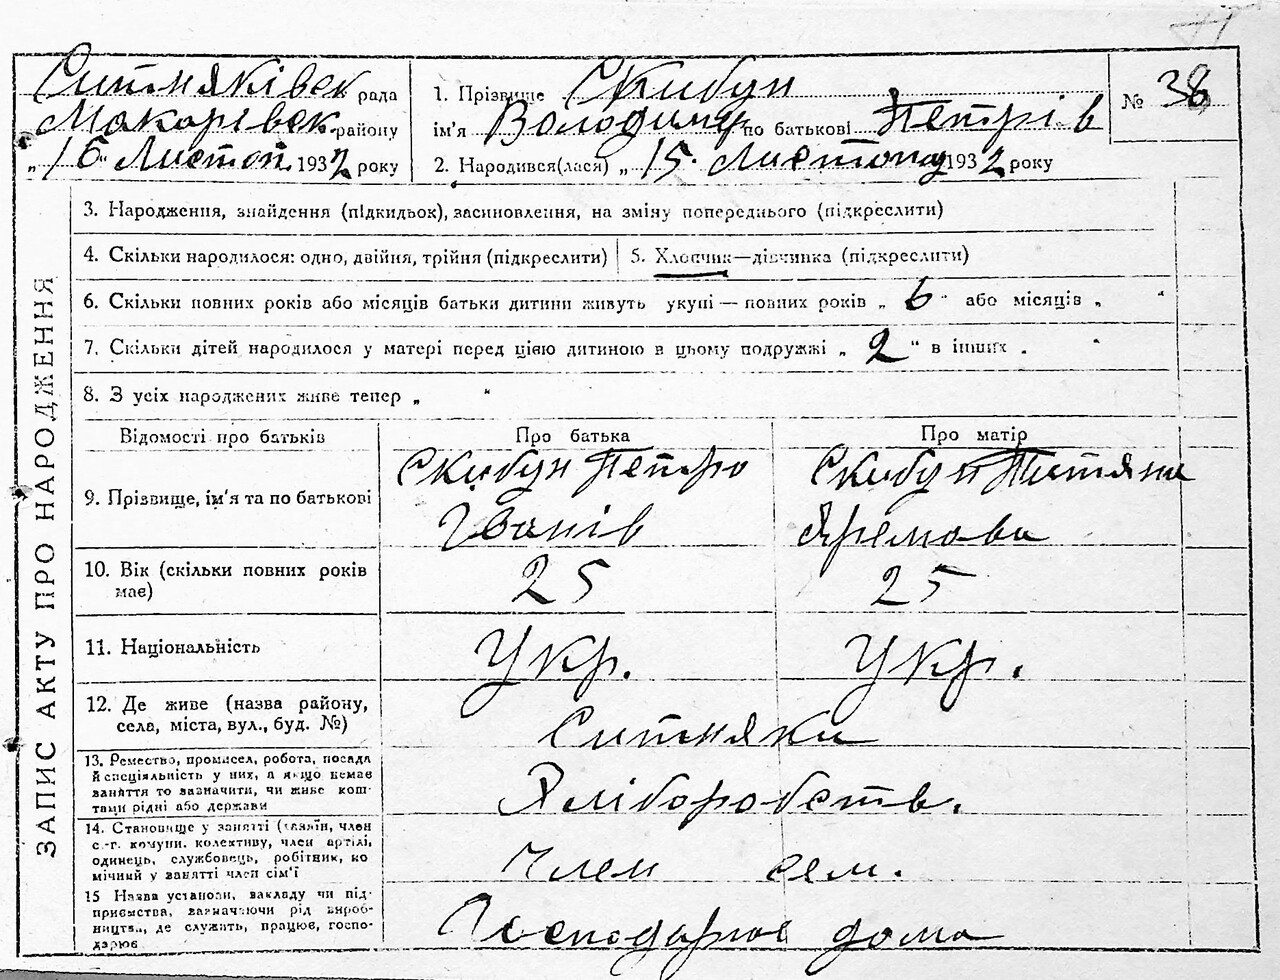 Ситняківск рада
Макарівск району
„16" Листоп 1932 року
1. Прізвище Скибун
ім'я Володимир по батькові Петрів
2. Народився(лася) „15. Листопаду 1932 року
№ 38
ЗАПИС АКТУ ПРО НАРОДЖЕННЯ
3. Народження, знайдення (підкидьок), засиновлення, на зміну попереднього (підкреслити)
4. Скільки народилося: одно, двійня, трійня (підкреслити) 5. Хлопчик—дівчинка (підкреслити)
6. Скільки повних років або місяців батьки дитини живуть укупі — повних років „ 6 " або місяців „ "
7. Скільки дітей народилося у матері перед цією дитиною в цьому подружжі „ 2 " в інших „ "
8. З усіх народжених живе тепер „ "
Відомості про батьків Про батька Про матір
9. Прізвище, ім'я та по батькові
Скибун Петро
Іванів
Скибун Титяна
Яремова
10. Вік (скільки повних років
має)
25 25
11. Національність Укр. Укр.
12. Де живе (назва району,
села, міста, вул., буд. №)
Ситняки
13. Ремество, промисел, робота, посада
й спеціяльність у них, а якщо немає
заняття то зазначити, чи живе кош-
тами рідні або держави
Хліборобств.
14. Становище у занятті (хазяїн, член
с.-г. комуни, колективу, член артілі,
одинець, службовець, робітник, ко
мічний у занятті член сім'ї
Член сем.
15 Назва установи, закладу чи під-
приємства, зазначаючи рід вироб-
ництва, де служать, працює, госпо-
дарює
Господарює дома